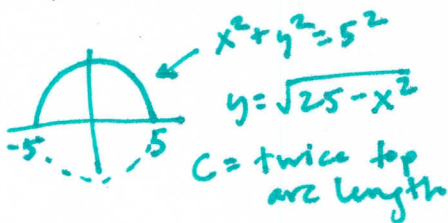 x² + y² = 5²
y = √25 - x²
-5 5
C = twice top
arc length